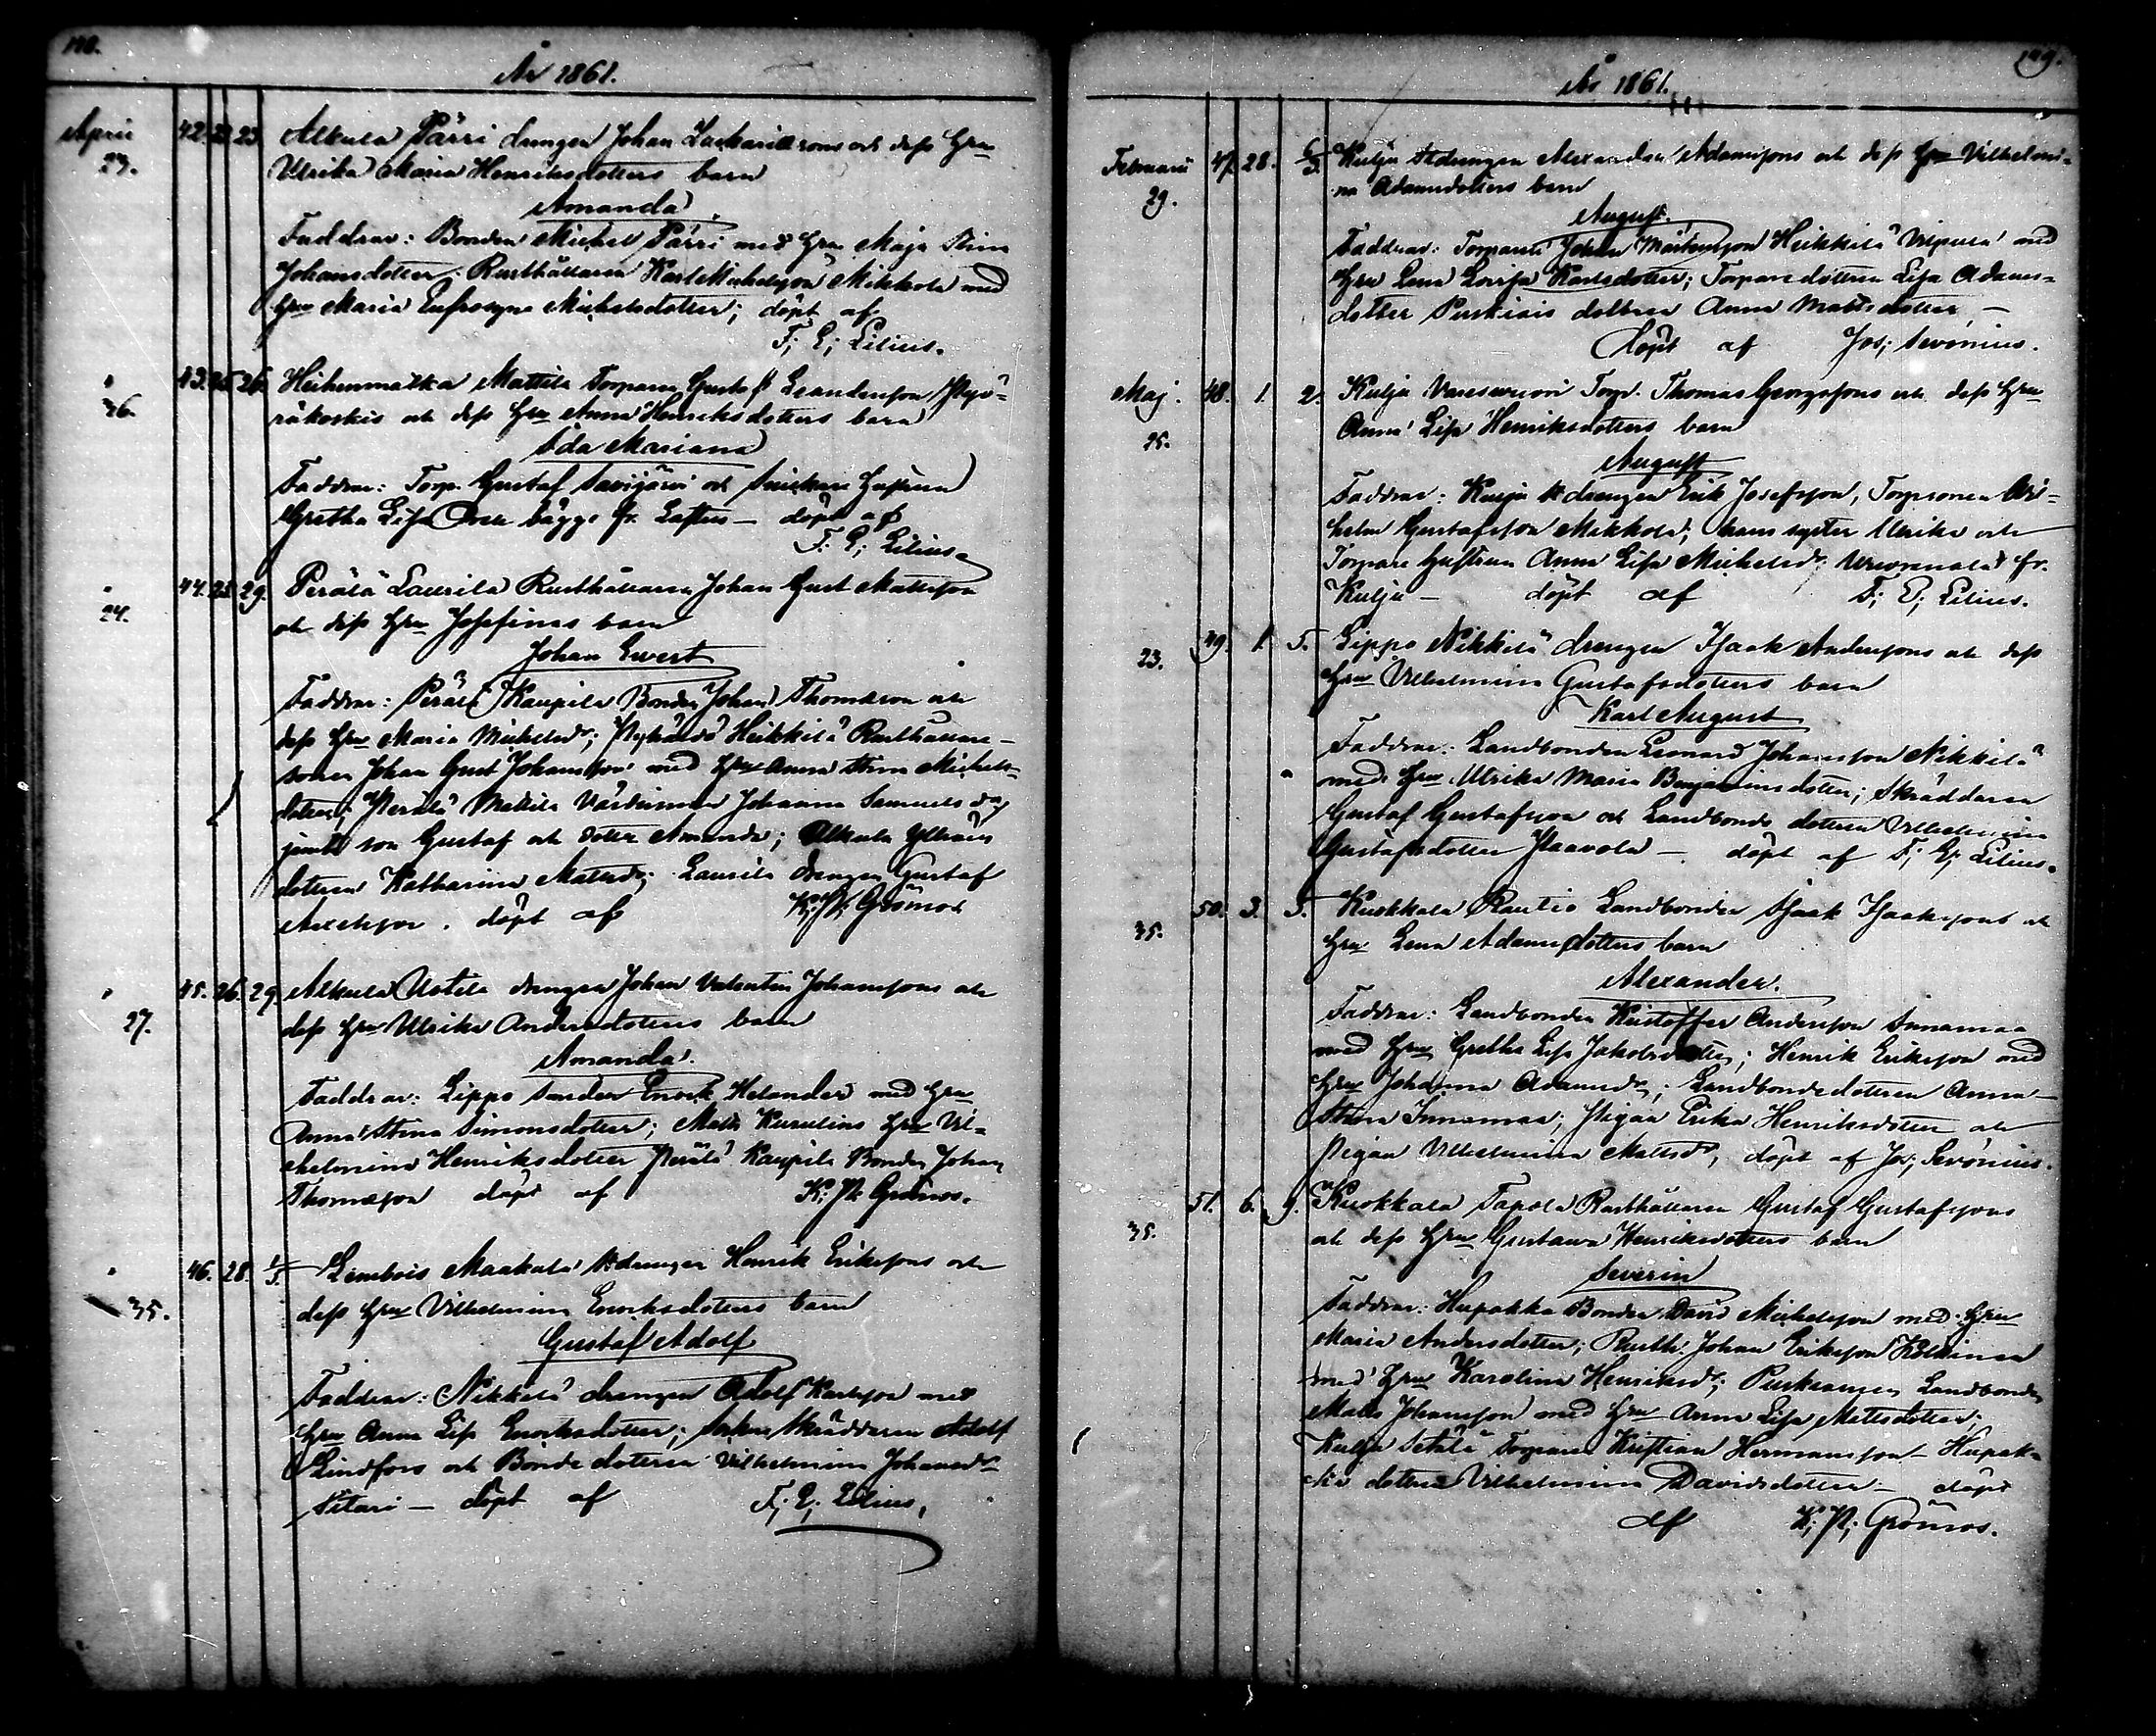 År 1861.
April 42. 22. 23. Alkula Pärri drengen Johan Zackarissons och dess Hru
23. Ulrika Maria Henriksdotters barn
Amanda
Faddrar: Bonden Michel Pärri med Hru Maja Stina
Johansdotter; Rusthållaren Karl Michelsson Mikkola med
Hru Maria Eufrosyne Michelsdotter; döpt af
F; E; Lilius.
43. 25. 26. Mattila Torparen Gustaf Leandersson
36. och dess Hru Anna Henriksdotters barn
Ida Mariana
Faddrar: Torp. Gustaf Savijärvi och Snickare Hustrun
Gretha Lisa bägge fr. döpt af
F: E; Lilius
44. 29. Perälä Laurila Rusthållaren Johan Gust Mattsson
24. och dess Hru Josefinas barn
Johan Evert
Faddrar: Perälä Kaupila Bonden Johan Thomasson och
dess Hru Maria Michelsd; Heikkilä Rusthållare-
sonen Johan Gust Johansson med Hru Anna Stina Michels-
dotter; Perälä Mattila Värdinnan Johanna Samuelsd
jemte son Gustaf och dotter Amanda; Alkula
dotteren Katharina Mattsd; Laurila drengen Gustaf
Axelsson. döpt af K; P; Grönros
45. 26. 29. Alkula Uotila drengen Johan Valentin Johanssons och
27. dess Hru Ulrika Andersdotters barn
Amanda.
Faddrar: Lippo Enock Helander med Hru
Anna Stina Simonsdotter; Matts Hru Vil-
helmina Henriksdotter Perälä Kaupila Bonden Johan
Thomasson döpt af K; P; Grönros.
46. 28. 1/5. Limbois Maakala drengen Henrik Erikssons och
35. dess Hru Vilhelmina Enocksdotters barn
Gustaf Adolf
Faddrar: Nikkilä drengen Adolf Karlsson med
Hru Anna Lisa Enocksdotter; Skräddaren Adolf
Lindfors och Bonde dotteren Vilhelmina Johansd
döpt af F; E; Lilius,
149.
År 1861.
Februarii 47. 28. 6/5. Kulju drengen Alexander Adamssons och dess Hru Vilhelmi-
29. na Adamsdotters barn
August.
Faddrar: Torparen Johan Mårtensson Heikkilä med
Hru Lena Lovisa Karlsdotter; Torparedotteren Lisa Adams-
dotter dottren Anna Mattsdotter, -
döpt af Jos; Sevonius.
Maj. 48. 1. 2. Kulju Torp. Thomas Georgssons och dess Hru
25. Anna Lisa Henriksdotters barn
August
Faddrar: Kulju drengen Erik Josefsson, Torparen Vil-
helm Gustafsson Mikkola; hans syster Ulrika och
Torpare hustrun Anna Lisa Michelsd fr.
Kulju - döpt af F; E; Lilius.
49. 1. 5. Lippo Nikkilä drengen Isaak Anderssons och dess
23. Hru Vilhelmina Gustafsdotters barn
Karl August
Faddrar: Landbonden Leonard Johansson Nikkilä
med Hru Ulrika Maria Benjaminsdotter; Skräddaren
Gustaf Gustafsson och Landbonde dotteren Vilhelmina
Gustafsdotter Paavola - döpt af F; E; Lilius.
50. 3. 5. Kuokkala Rautio Landbonden Isaak Isakssons och
35. Hru Lena Adamsdotters barn
Alexander.
Faddrar: Landbonden Kristoffer Andersson Innamaa
med Hru Gretha Lisa Jakobsdotter; Henrik Eriksson med
Hru Johanna Adamsd; Landbondedotteren Anna
Stina Innamaa; Pigan Erika Henriksdotter och
Pigan Vilhelmina Mattsd, döpt af Jos; Sevonius.
51. 6. 9. Kuokkala Tapola Rusthållaren Gustaf Gustafssons
35. och dess Hru Gustava Henriksdotters barn
Severin
Faddrar: Hupakka Bonden David Michelsson med Hru
Maria Andersdotter; Rusth. Johan Eriksson
med Hru Karolina Henriksd; Landbonden
Matts Johansson med Hru Anna Lisa Mattsdotter;
Kulju Setälä Torparen Kristian Hermansson - Hupak-
ka dotter Vilhelmina Davidsdotter - döpt
af K; P; Grönros.